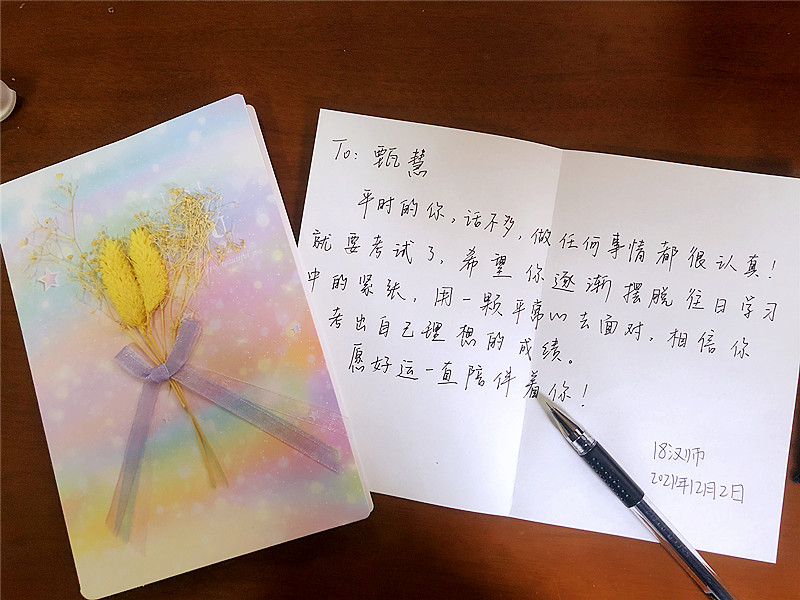 To: 甄慧
平时的你，话不多，做任何事情都很认真！
就要考试了，希望你逐渐摆脱往日学习
中的紧张，用一颗平常心去面对，相信你
考出自己理想的成绩。
愿好运一直陪伴着你！
18汉师
2021年12月2日